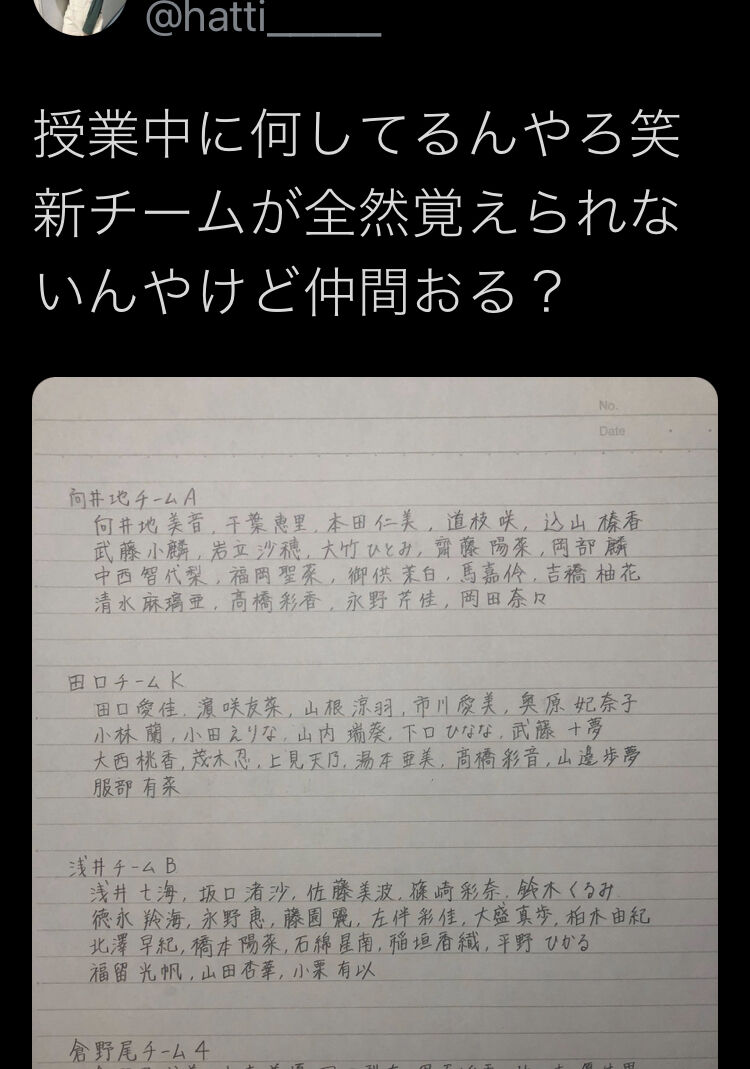 @hatti_____
授業中に何してるんやろ笑
新チームが全然覚えられな
いんやけど仲間おる？
No.
Date
向井地チームA
向井地美音, 千葉恵里, 本田仁美, 道枝咲, 込山榛香
武藤小麟, 岩立沙穂, 大竹ひとみ, 齋藤陽菜, 岡部麟
中西智代梨, 福岡聖菜, 御供茉白, 馬嘉伶, 吉橋柚花
清水麻璃亜, 髙橋彩香, 永野芹佳, 岡田奈々
田口チームK
田口愛佳, 濵咲友菜, 山根涼羽, 市川愛美, 奥原妃奈子
小林蘭, 小田えりな, 山内瑞葵, 下口ひなな, 武藤十夢
大西桃香, 茂木忍, 上見天乃, 湯本亜美, 髙橋彩音, 山邊歩夢
服部有菜
浅井チームB
浅井七海, 坂口渚沙, 佐藤美波, 篠崎彩奈, 鈴木くるみ
徳永羚海, 永野恵, 藤園麗, 左伴彩佳, 大盛真歩, 柏木由紀
北澤早紀, 橋本陽菜, 石綿星南, 稲垣香織, 平野ひかる
福留光帆, 山田杏華, 小栗有以
倉野尾チーム4